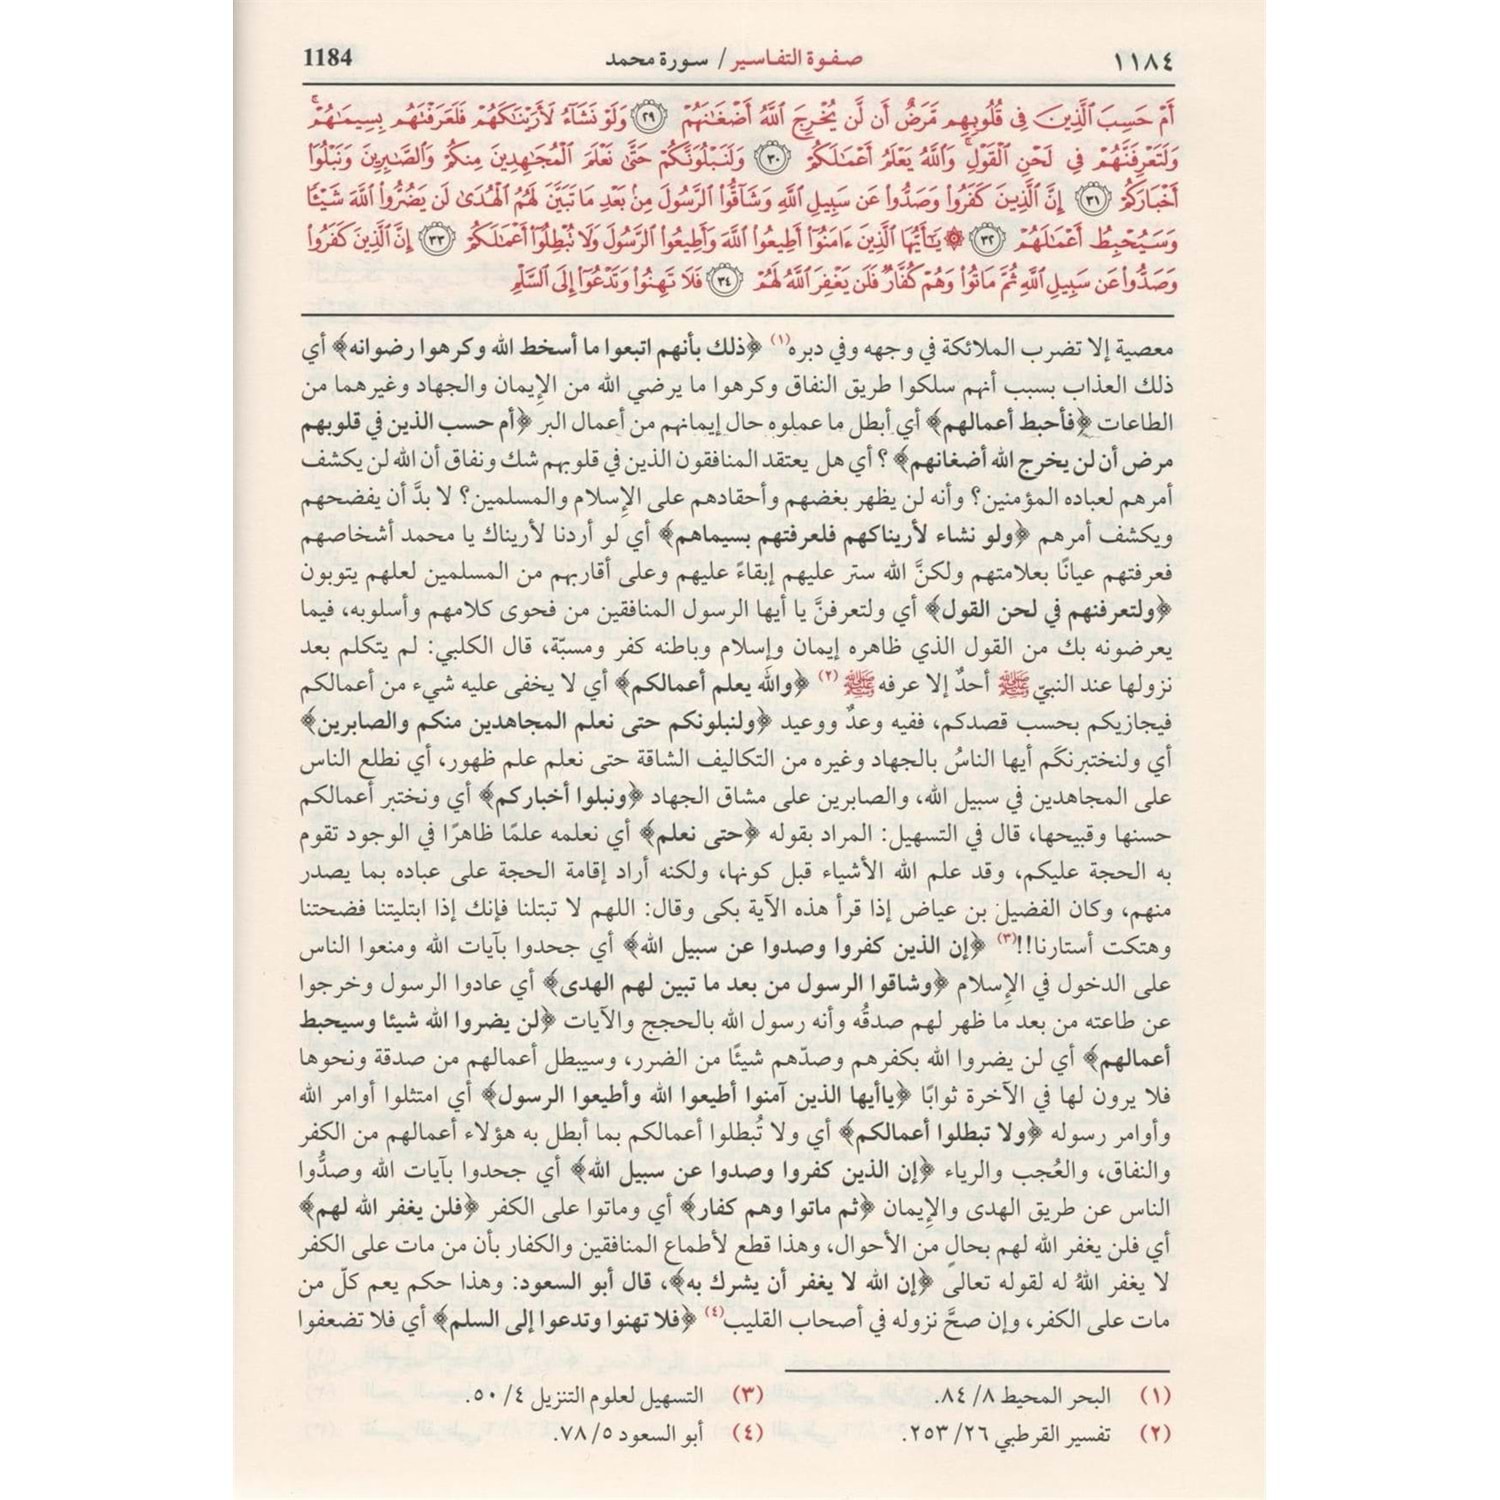 ١١٨٤ صفوة التفاسير / سورة محمد 1184
أَمْ حَسِبَ ٱلَّذِينَ فِى قُلُوبِهِم مَّرَضٌ أَن لَّن يُخْرِجَ ٱللَّهُ أَضْغَـٰنَهُمْ ٢٩ وَلَوْ نَشَآءُ لَأَرَيْنَـٰكَهُمْ فَلَعَرَفْتَهُم بِسِيمَـٰهُمْ ۚ
وَلَتَعْرِفَنَّهُمْ فِى لَحْنِ ٱلْقَوْلِ ۚ وَٱللَّهُ يَعْلَمُ أَعْمَـٰلَكُمْ ٣٠ وَلَنَبْلُوَنَّكُمْ حَتَّىٰ نَعْلَمَ ٱلْمُجَـٰهِدِينَ مِنكُمْ وَٱلصَّـٰبِرِينَ وَنَبْلُوَا۟
أَخْبَارَكُمْ ٣١ إِنَّ ٱلَّذِينَ كَفَرُوا۟ وَصَدُّوا۟ عَن سَبِيلِ ٱللَّهِ وَشَآقُّوا۟ ٱلرَّسُولَ مِنۢ بَعْدِ مَا تَبَيَّنَ لَهُمُ ٱلْهُدَىٰ لَن يَضُرُّوا۟ ٱللَّهَ شَيْـًٔا
وَسَيُحْبِطُ أَعْمَـٰلَهُمْ ٣٢ ۞ يَـٰٓأَيُّهَا ٱلَّذِينَ ءَامَنُوٓا۟ أَطِيعُوا۟ ٱللَّهَ وَأَطِيعُوا۟ ٱلرَّسُولَ وَلَا تُبْطِلُوٓا۟ أَعْمَـٰلَكُمْ ٣٣ إِنَّ ٱلَّذِينَ كَفَرُوا۟
وَصَدُّوا۟ عَن سَبِيلِ ٱللَّهِ ثُمَّ مَاتُوا۟ وَهُمْ كُفَّارٌ فَلَن يَغْفِرَ ٱللَّهُ لَهُمْ ٣٤ فَلَا تَهِنُوا۟ وَتَدْعُوٓا۟ إِلَى ٱلسَّلْمِ
معصية إلا تضرب الملائكة في وجهه وفي دبره(١) ﴿ذلك بأنهم اتبعوا ما أسخط الله وكرهوا رضوانه﴾ أي
ذلك العذاب بسبب أنهم سلكوا طريق النفاق وكرهوا ما يرضي الله من الإِيمان والجهاد وغيرهما من
الطاعات ﴿فأحبط أعمالهم﴾ أي أبطل ما عملوه حال إيمانهم من أعمال البر ﴿أم حسب الذين في قلوبهم
مرض أن لن يخرج الله أضغانهم﴾ ؟ أي هل يعتقد المنافقون الذين في قلوبهم شك ونفاق أن الله لن يكشف
أمرهم لعباده المؤمنين؟ وأنه لن يظهر بغضهم وأحقادهم على الإِسلام والمسلمين؟ لا بدَّ أن يفضحهم
ويكشف أمرهم ﴿ولو نشاء لأريناكهم فلعرفتهم بسيماهم﴾ أي لو أردنا لأريناك يا محمد أشخاصهم
فعرفتهم عيانًا بعلامتهم ولكنَّ الله ستر عليهم إبقاءً عليهم وعلى أقاربهم من المسلمين لعلهم يتوبون
﴿ولتعرفنهم في لحن القول﴾ أي ولتعرفنَّ يا أيها الرسول المنافقين من فحوى كلامهم وأسلوبه، فيما
يعرضونه بك من القول الذي ظاهره إيمان وإسلام وباطنه كفر ومسبّة، قال الكلبي: لم يتكلم بعد
نزولها عند النبيّ ﷺ أحدٌ إلا عرفه ﷺ(٢) ﴿والله يعلم أعمالكم﴾ أي لا يخفى عليه شيء من أعمالكم
فيجازيكم بحسب قصدكم، ففيه وعدٌ ووعيد ﴿ولنبلونكم حتى نعلم المجاهدين منكم والصابرين﴾
أي ولنختبرنكَم أيها الناسُ بالجهاد وغيره من التكاليف الشاقة حتى نعلم علم ظهور، أي نطلع الناس
على المجاهدين في سبيل الله، والصابرين على مشاق الجهاد ﴿ونبلوا أخباركم﴾ أي ونختبر أعمالكم
حسنها وقبيحها، قال في التسهيل: المراد بقوله ﴿حتى نعلم﴾ أي نعلمه علمًا ظاهرًا في الوجود تقوم
به الحجة عليكم، وقد علم الله الأشياء قبل كونها، ولكنه أراد إقامة الحجة على عباده بما يصدر
منهم، وكان الفضيل بن عياض إذا قرأ هذه الآية بكى وقال: اللهم لا تبتلنا فإنك إذا ابتليتنا فضحتنا
وهتكت أستارنا!!(٣) ﴿إن الذين كفروا وصدوا عن سبيل الله﴾ أي جحدوا بآيات الله ومنعوا الناس
على الدخول في الإِسلام ﴿وشاقوا الرسول من بعد ما تبين لهم الهدى﴾ أي عادوا الرسول وخرجوا
عن طاعته من بعد ما ظهر لهم صدقُه وأنه رسول الله بالحجج والآيات ﴿لن يضروا الله شيئا وسيحبط
أعمالهم﴾ أي لن يضروا الله بكفرهم وصدّهم شيئًا من الضرر، وسيبطل أعمالهم من صدقة ونحوها
فلا يرون لها في الآخرة ثوابًا ﴿ياأيها الذين آمنوا أطيعوا الله وأطيعوا الرسول﴾ أي امتثلوا أوامر الله
وأوامر رسوله ﴿ولا تبطلوا أعمالكم﴾ أي ولا تُبطلوا أعمالكم بما أبطل به هؤلاء أعمالهم من الكفر
والنفاق، والعُجب والرياء ﴿إن الذين كفروا وصدوا عن سبيل الله﴾ أي جحدوا بآيات الله وصدُّوا
الناس عن طريق الهدى والإِيمان ﴿ثم ماتوا وهم كفار﴾ أي وماتوا على الكفر ﴿فلن يغفر الله لهم﴾
أي فلن يغفر الله لهم بحالٍ من الأحوال، وهذا قطع لأطماع المنافقين والكفار بأن من مات على الكفر
لا يغفر اللهُ له لقوله تعالى ﴿إن الله لا يغفر أن يشرك به﴾، قال أبو السعود: وهذا حكم يعم كلّ من
مات على الكفر، وإن صحَّ نزوله في أصحاب القليب(٤) ﴿فلا تهنوا وتدعوا إلى السلم﴾ أي فلا تضعفوا
(١) البحر المحيط ٨/ ٨٤. (٣) التسهيل لعلوم التنزيل ٤/ ٥٠.
(٢) تفسير القرطبي ٢٦/ ٢٥٣. (٤) أبو السعود ٥/ ٧٨.